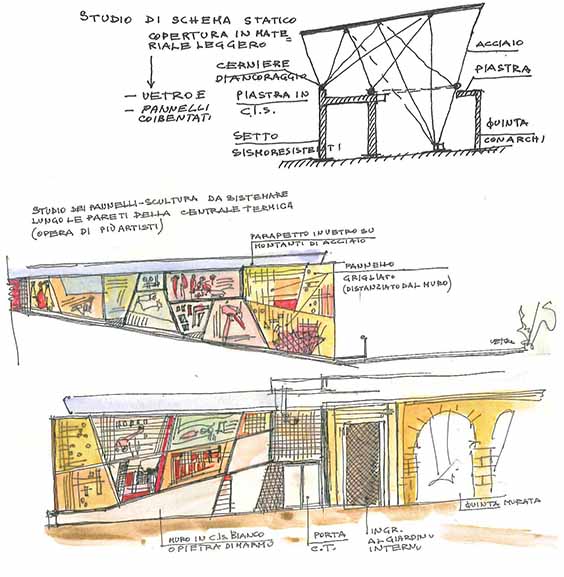 STUDIO DI SCHEMA STATICO
COPERTURA IN MATE
RIALE LEGGERO
CERNIERE
DI ANCORAGGIO
- VETRO E
- PANNELLI
COIBENTATI
PIASTRA IN
C.L.S.
SETTO
SISMORESISTENTI
ACCIAIO
PIASTRA
QUINTA
CON ARCHI
STUDIO DEI PANNELLI-SCULTURA DA SISTEMARE
LUNGO LE PARETI DELLA CENTRALE TERMICA
(OPERA DI PIÙ ARTISTI)
PARAPETTO IN VETRO SU
MONTANTI DI ACCIAIO
PANNELLO
GRIGLIATO
(DISTANZIATO DAL MURO)
MURO IN c.l.s. BIANCO
O PIETRA DI MARMO
PORTA
C.T.
INGR.
AL GIARDINO
INTERNO
QUINTA MURATA